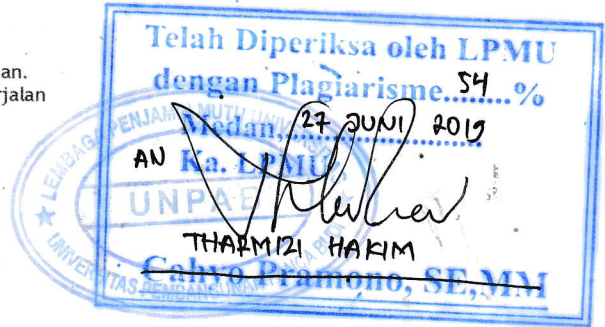 an.
rjalan
Telah Diperiksa oleh LPMU
dengan Plagiarisme...54...%
Medan, 27 JUNI 2019
AN Ka. LPMU,
UNPAB
THARMIZI HAKIM
Cahyo Pramono, SE, MM
LEMBAGA PENJAMINAN MUTU UNIVERSITAS
UNIVERSITAS PEMBANGUNAN PANCA BUDI